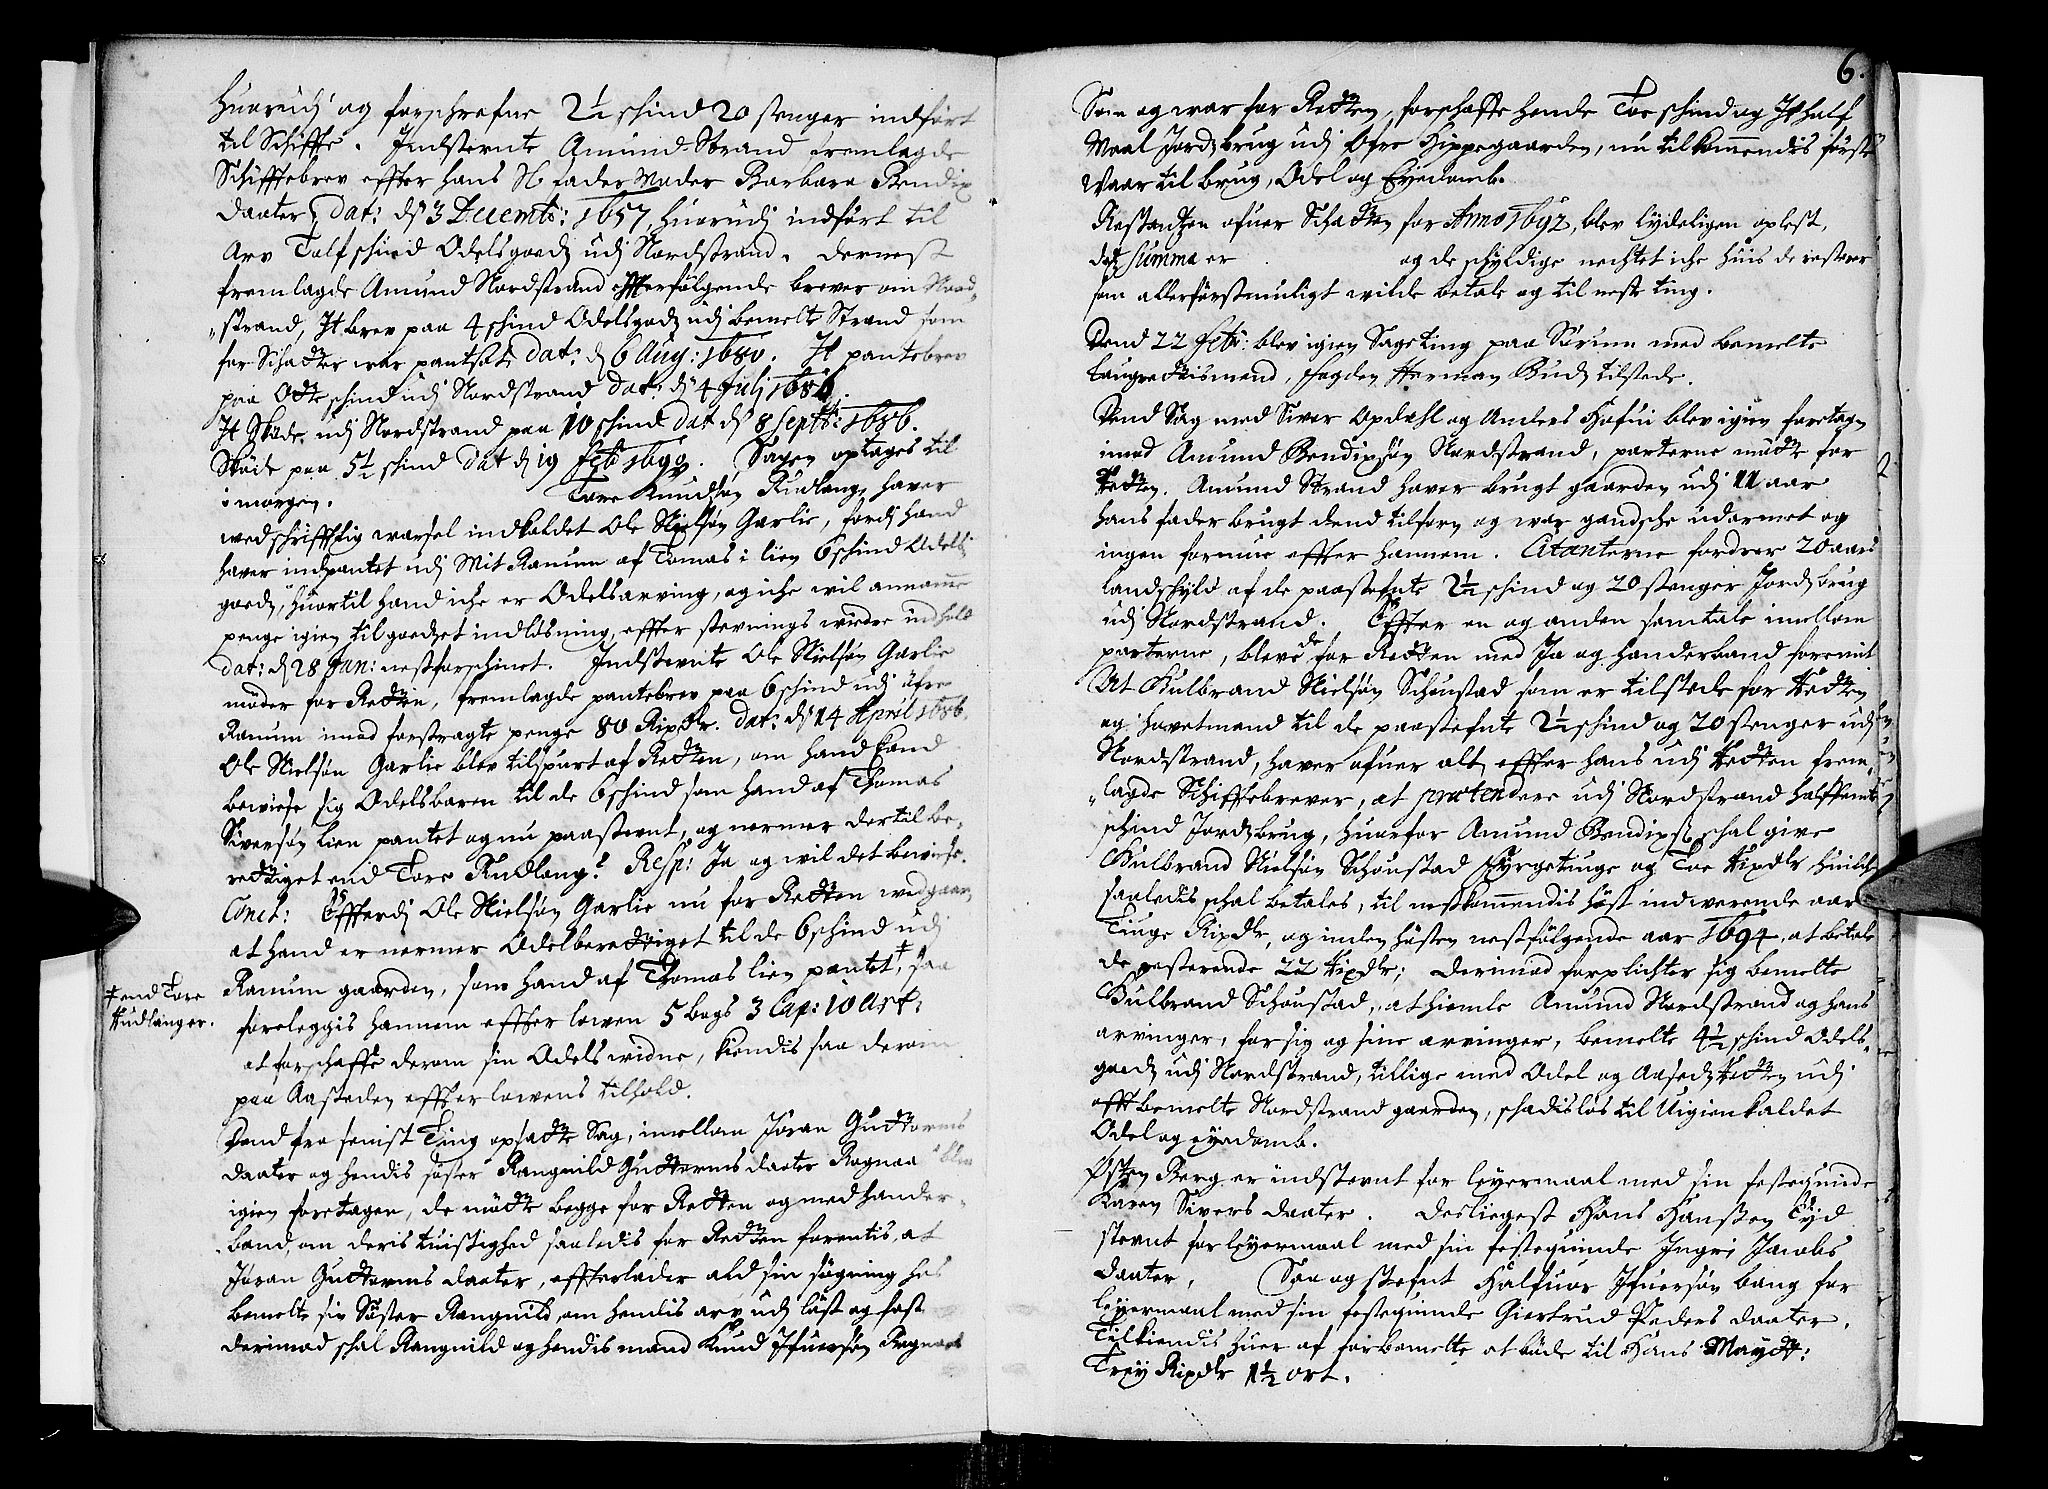 Huorudj og forschrefne 2½ schind 20 stenger indført
til Schiffte. Indstevnte Amund Strand fremlagde
Schifftebrev effter hans Sl fader Moder Barbara Bendix
daater, dat: dj 3 Decemb: 1657, huorudj indført til
Arv Tolf schind Odelsgoedz udj Nordstrand. dernest
fremlagde Amund Nordstrand effterfølgende brever om Nord-
"strand, It brev paa 4 schind Odelsgodz udj bemelte Strand som
for Schatter war pantsat, dat: dj 6 Aug: 1680. It pantebrev
paa Otte schind udj Nordstrand dat: dj 4 Julj 1686.
It Skøde udj Nordstrand paa 10 schind dat dj 8 Septb: 1686.
Skøde paa 5½ schind dat dj 19 Feb 1692. Sagen optages til
i morgen. Tore Knudsøn Rudlang haver
med schrifftlig warsel indkaldet Ole Nielsøn Garlie, fordj hand
haver indpantet udj Mit Ranum af Tomas i lien 6 schind Odels
goedz, huortil hand iche er Odelsarving, og iche wil annamme
penge igien til goedzet indløsning, effter stevnings widre indhold
dat: dj 28 Jan: nestforschinet. Indstevnte Ole Nielsøn Garlie
møder for Retten, fremlagde pantebrev paa 6 schind udj øfre
Ranum imod forstragte penge 80 Rixdlr. dat: dj 14 April 1686.
Ole Nielsøn Garlie blev tilspurt af Retten, om hand kand
bewiese sig Odelsbaren til de 6 schind som hand af Thomas
Siversøn lien pantet og nu paastevnt, og nermer dertil be-
rettiget end Tore Rudlang? Resp: Ja og wil det bewiese.
Conct: Effterdj Ole Nielsøn Garlie nu for Retten wedgaar,
at hand er nermer Odelberettiget til de 6 schind udj
Ranum gaarden, som hand af Thomas lien pantet ‡, saa
‡ end Tore
Rudlanger.
foreleggis hannem effter lowen 5 bogs 3 Cap: 10 Art:
at forschaffe derom sin Odels widne, kiendis saa derom
paa Aasteden effter lowens tilhold.
Dend fra senist Ting opsatte Sag, imellom Jøran Guttorms
daater og hendis søster Rangnild Guttorms daater Rognaa blev
igien foretagen, de møtte begge for Retten og med hander-
band, om deris tuistighed saaledis for Retten forentis, at
Jøran Guttorms daater, effterlader ald sin søgning hos
bemelte sin Søster Rangnild, om hendis arv udj løst og fast
derimod schal Rangnild og hendis mand Knud Ifuersøn Rognaa
6.
Som og war for Retten, forschaffe hende Toe schind og It half
Maal Jordz brug udj Øfre Hippegaarden, nu tilkommendis første
Waar til brug, Odel og Eyedomb.
Restantzen ofuer Schatten for Anno 1692, blev lydeligen oplest,
dis summa er og de schyldige nechtet iche huis de resterer
som allerførstmuligt wilde betale og til neste ting.
Dend 22 Feb: blev igien Sageting paa Sørum med bemelte
laugrettismend, Fogden Herman Budz tilstede.
Dend Sag med Siver Opdahl og Anders Hofui blev igien foretagen
imod Amund Bendixsøn Nordstrand, parterne møtte for
Retten. Amund Strand haver brugt gaarden udj 11 aar
hans fader brugt dend tilforn og war gandsche udarmet og
ingen formue effter hannem. Citanterne fordrer 20 aars
landschyld af de paastefnte 2½ schind og 20 stenger Jordz brug
udj Nordstrand. Effter en og anden samtale imellom
parterne, bleve de for Retten med Ja og handerband forenit
At Gulbrand Nielsøn Schoustad som er tilstede for Retten
og hovetmand til de paastefnte 2½ schind og 20 stenger udj
Nordstrand, haver ofuer alt effter hans udj Retten frem-
"lagde Schifftebrever, at prætendere udj Nordstrand halffemte
schind Jordz brug, huorfor Amund Bendixs. schal give
Gulbrand Nielsøn Schoustad Fyrgetiuge og Toe Rixdlr huilcke
saaledis schal betales, til nestkommendis høst indwerende aar
Tiuge Rixdlr, og inden høsten nestfølgende aar 1694, at betale
de resterende 22 Rixdlr; derimod forplichter sig bemelte
Gulbrand Schoustad, at hiemle Amund Nordstrand og hans
arvinger, for sig og sine arvinger, bemelte 4½ schind Odels-
goedz udj Nordstrand, tillige med Odel og Aasedz Retten udj
offt bemelte Nordstrand gaarden, schadisløs til Uigienkaldet
Odel og eyedomb.
Østen Berg er indstevnt for leyermaal med sin festequinde
Karen Sivers daater. desliegest Hans Hanssen Tyd
stevnt for leyermaal med sin festequinde Ingri Jacobs
daater, Saa og stefnt Halfuor Ifuersøn bang for
leyermaal med sin festequinde Giertrud Peders daater.
Tilkiendis huer af forbemelte at bøde til Hans Maytt:
Trey Rixdlr 1½ ort.